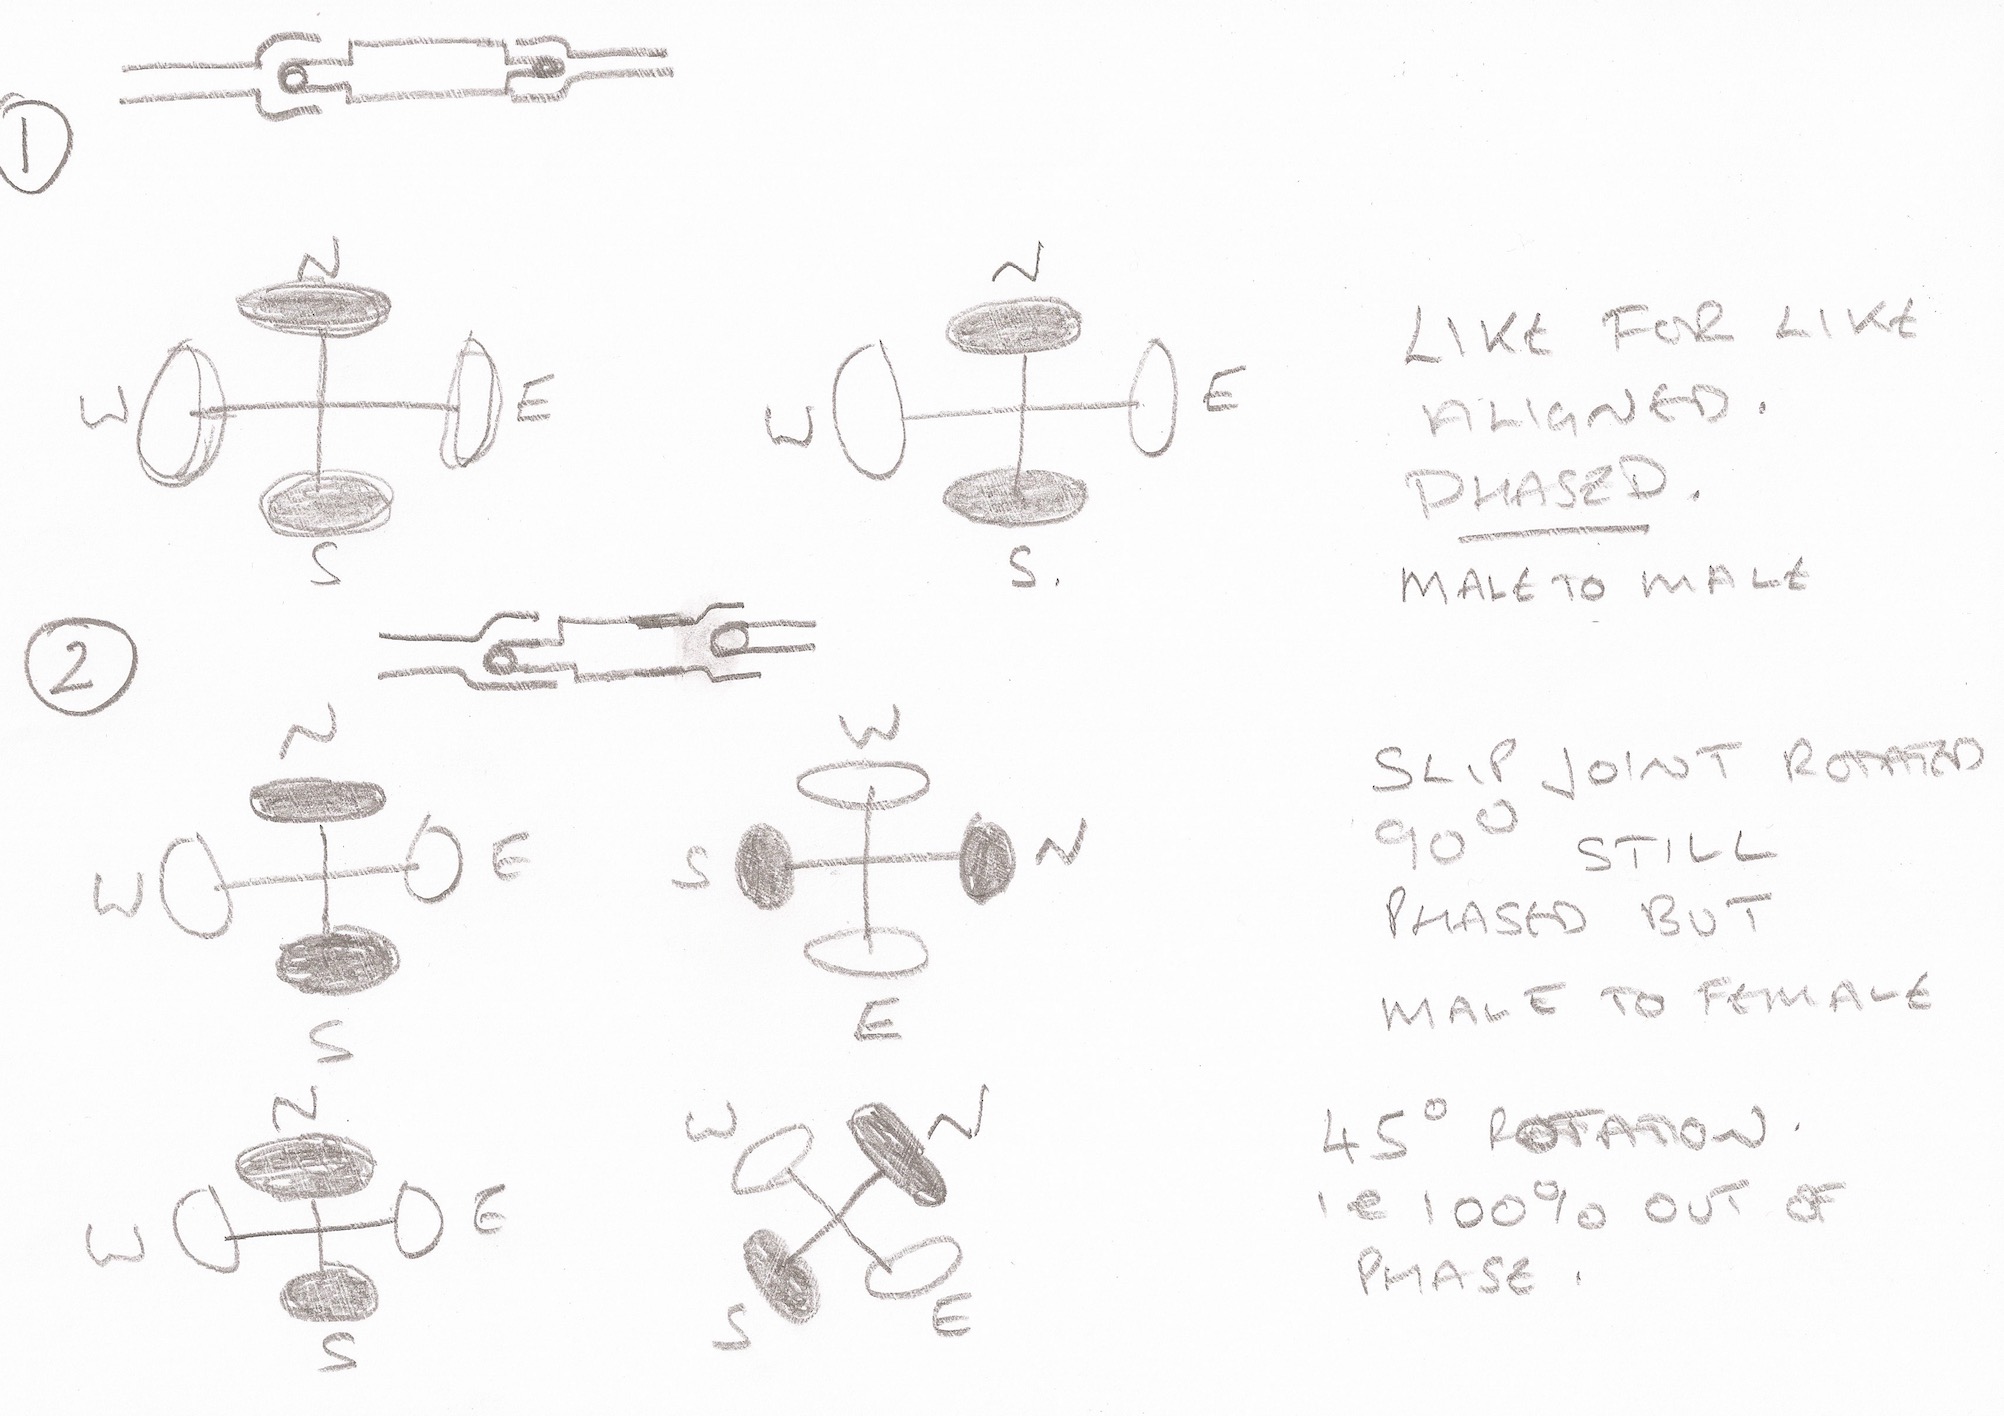 1
N
N
W
E
W
E
S
S.
LIKE FOR LIKE
ALIGNED.
PHASED.
MALE TO MALE
2
N
W
E
S
W
S
N
E
SLIP JOINT ROTATED
90° STILL
PHASED BUT
MALE TO FEMALE
N
W
E
S
W
N
S
E
45° ROTATION.
ie 100% OUT OF
PHASE.